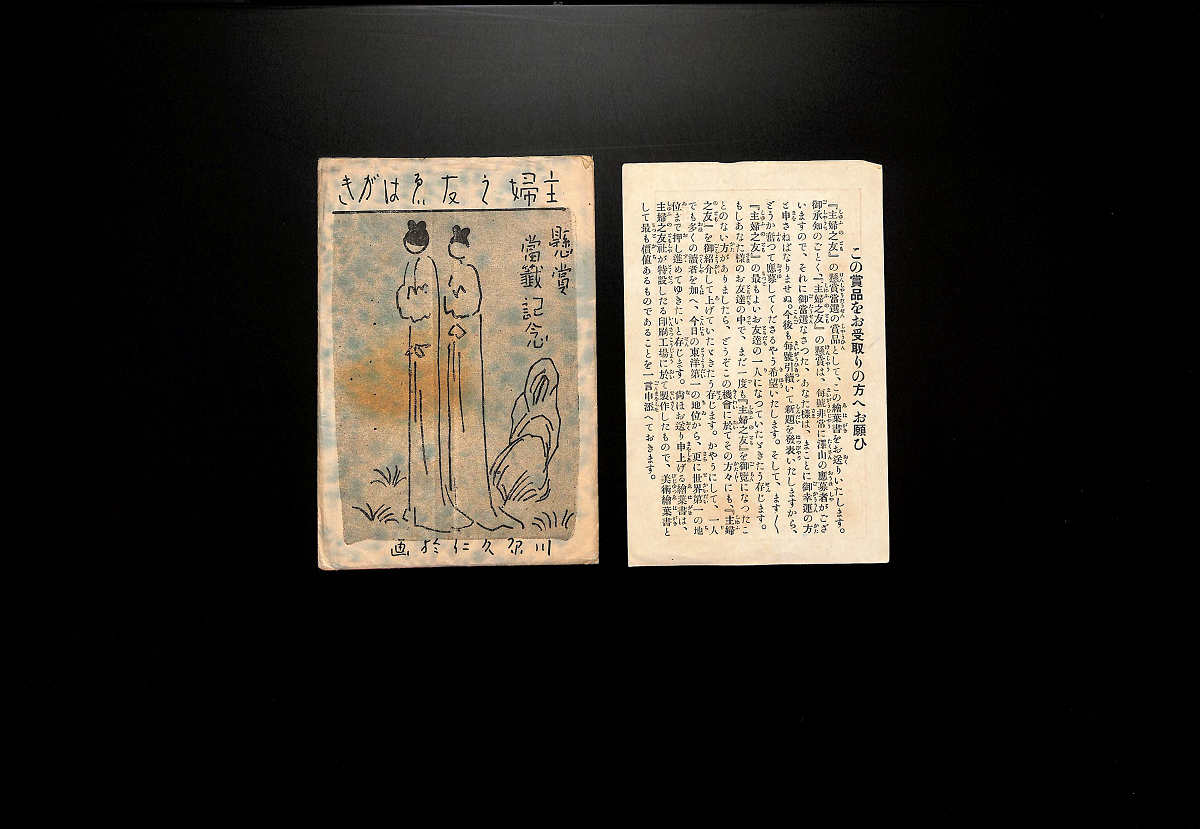 主婦之友ゑはがき
懸賞
當籤記念
川原久仁於画
この賞品をお受取りの方へお願ひ
『主婦之友』の懸賞當選の賞品として、この繪葉書をお送りいたします。
御承知のごとく、『主婦之友』の懸賞は、毎號非常に澤山の應募者がござ
いますので、それに御當選なさつた、あなた樣は、まことに御幸運の方
と申さねばなりませぬ。今後も毎號引續いて新題を發表いたしますから、
どうか奮つて應募してくださるやう希望いたします。そして、ます〳〵
『主婦之友』の最もよいお友達の一人になつていたゞきたう存じます。
もしあなた樣のお友達の中で、まだ一度も『主婦之友』を御覽になつたこ
とのない方がありましたら、どうぞこの機會に於てその方々にも、『主婦
之友』を御紹介して上げていたゞきたう存じます。かやうにして、一人
でも多くの讀者を加へ、今日の東洋第一の地位から、更に世界第一の地
位まで押し進めてゆきたいと存じます。尚ほお送り申上げる繪葉書は、
主婦之友社が特設したる印刷工場に於て製作したもので、美術繪葉書と
して最も價値あるものであることを一言申添へておきます。